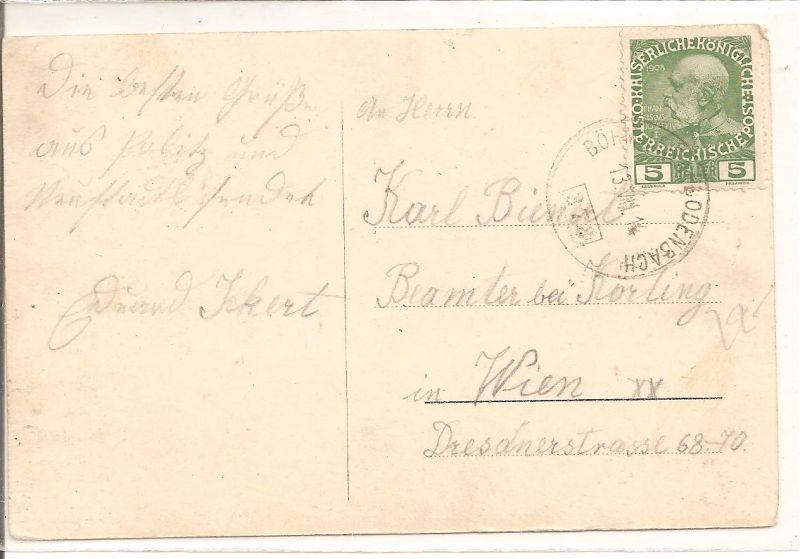 Die besten Grüße
aus Politz und
Neustadtl sendet
Eduard Ickert
An Herrn
Karl
Beamter bei Körting
in Wien XX
Dresdnerstrasse 68-70.
KAISERLICHE KÖNIGLICHE ÖSTERREICHISCHE POST
1908
5 HELLER 5
BÖH
BODENBACH
13